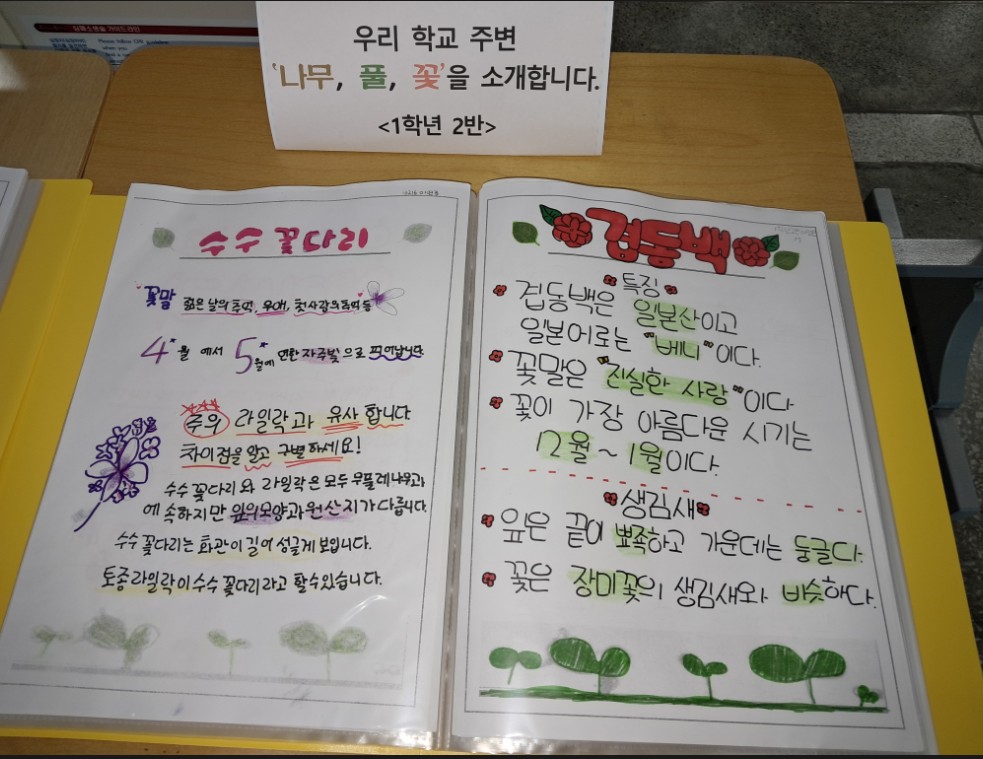 Please follow CPR
when you
우리 학교 주변
'나무, 풀, 꽃'을 소개합니다.
<1학년 2반>
수수꽃다리
꽃말 젊은 날의 추억, 우애, 첫사랑의 추억 등
4월에서 5월에 연한 자주빛으로 피어납니다
주의 라일락과 유사합니다
차이점을 알고 구별하세요!
수수꽃다리와 라일락은 모두 물푸레나무과
에 속하지만 잎의 모양과 원산지가 다릅니다.
수수꽃다리는 화관이 길어 성글게 보입니다.
토종라일락이 수수꽃다리라고 할 수 있습니다.
겹동백
특징
겹동백은 일본산이고
일본어로는 "베니"이다.
꽃말은 "진실한 사랑"이다
꽃이 가장 아름다운 시기는
12월 ~ 1월이다.
생김새
잎은 끝이 뾰족하고 가운데는 둥글다.
꽃은 장미꽃의 생김새와 비슷하다.